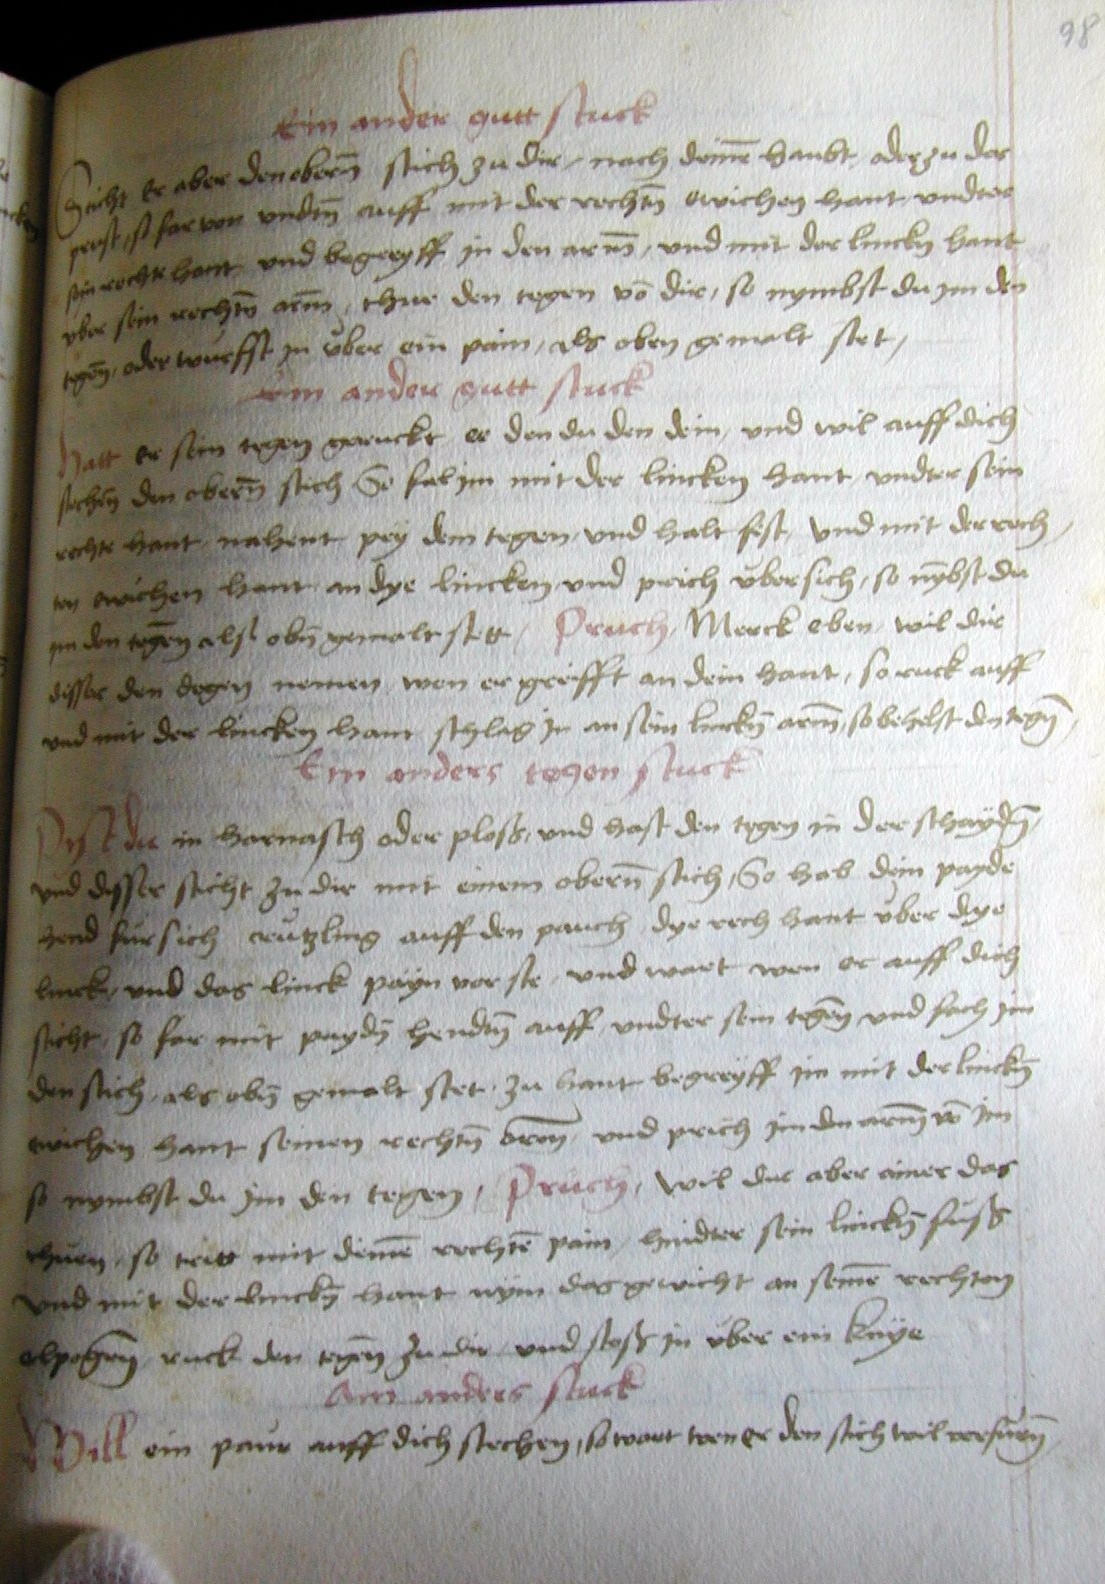 98
Ein ander gutt stuck
Sticht Er aber den obern̄ stich zu dir / nach deinē haubt oder zu der
prust / so far von vndtn̄ auff mit der rechtn̄ ebichen hant vndter
sein rechte hant vnd begreyff in den armē / vnd mit der linckn̄ hant
vber sein rechtn̄ arm̄ / thue den tegen vō dir / so nymbst du im den
tegen̄ / oder wurffst in über ein pain / als oben gemalt stet /
Ein ander gutt stuck
Hatt er sein tegen geruckt ee den du den dein / vnd wil auff dich
stechen̄ den obern̄ stich So fal im mit der lincken hant vndter sein
rechte hant / nahent pey dem tegen / vnd halt fest / vnd mit der rech /
ten ebichen hant an dye lincken vnd prich über sich / so nȳbst du
im den tegen̄ als obn̄ gemalt stett / Pruch / Merck eben / wil dir
disser den degen nemen / wen er greifft an dein hant / so ruck auff
vnd mit der lincken hant schlag in an sein linckn̄ arm̄ / so behelst den tegn̄ /
Ein anders tegen stuck
Pist du in harnasch oder ploss / vnd hast den tegen in der schaydn̄ /
vnd disser sticht zu dir mit einem obern̄ stich / So hab dein payde
hend für sich creützling auff den pauch / dye rech hant über dye
linck / vnd das linck payn vor ste / vnd wart wen er auff dich
sticht / so far mit paydn̄ hendtn̄ auff vndter sein tegen̄ vnd fach im
den stich / als obn̄ gemalt stet / zu hant begreyff im mit der linckn̄
ebichen hant seinen rechtn̄ arm̄ / vnd prich im den arm̄ vō im
so nymbst du im den tegen / Prüch / Wil dir aber ainer das
thuen / so tritt mit deinē rechtē pain / hindter sein linckn̄ fuss
vnd mit der linckn̄ hant nym das gewicht an seinē rechten
elpogen̄ / ruck den tegen̄ zu dir / vnd stoss in über ein knye
Ain anders stuck
Will ein paur auff dich stechen / so wart wen er den stich wil verfürn̄